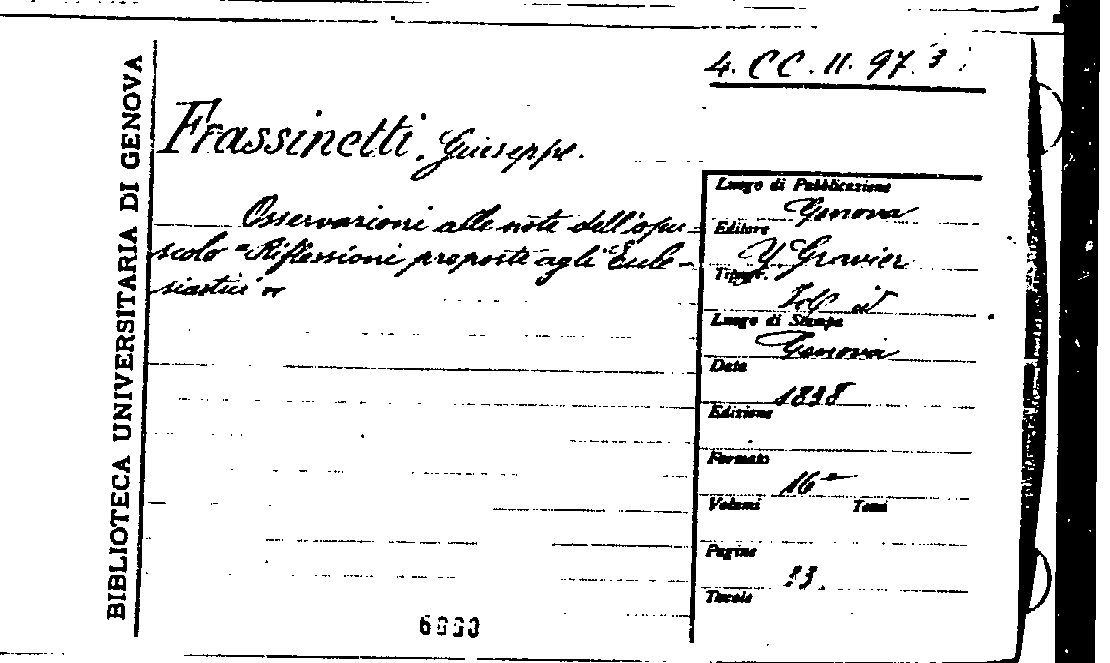 BIBLIOTECA UNIVERSITARIA DI GENOVA
4. CC. II. 97. 3
Frassinetti, Giuseppe.
Osservazioni alle note dell'opu-
scolo "Riflessioni proposte agli Eccle-
siastici"
Luogo di Pubblicazione
Genova
Editore
Y Gravier
Tipogr.
Luogo di Stampa
Genova
Data
1838
Edizione
Formato
16°
Volumi Tomi
Pagine
Tavole